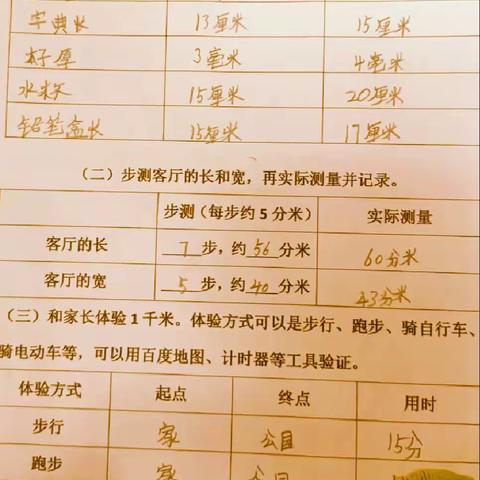 字典长 13厘米 15厘米
本子厚 3毫米 4毫米
水杯 15厘米 20厘米
铅笔盒长 15厘米 17厘米
（二）步测客厅的长和宽，再实际测量并记录。
步测（每步约5分米） 实际测量
客厅的长 7步，约56分米 60分米
客厅的宽 5步，约40分米 43分米
（三）和家长体验1千米。体验方式可以是步行、跑步、骑自行车、
骑电动车等，可以用百度地图、计时器等工具验证。
体验方式 起点 终点 用时
步行 家 公园 15分
跑步 家 公园